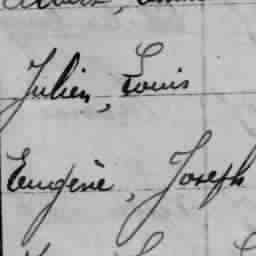 Julien, Louis
Eugène, Joseph